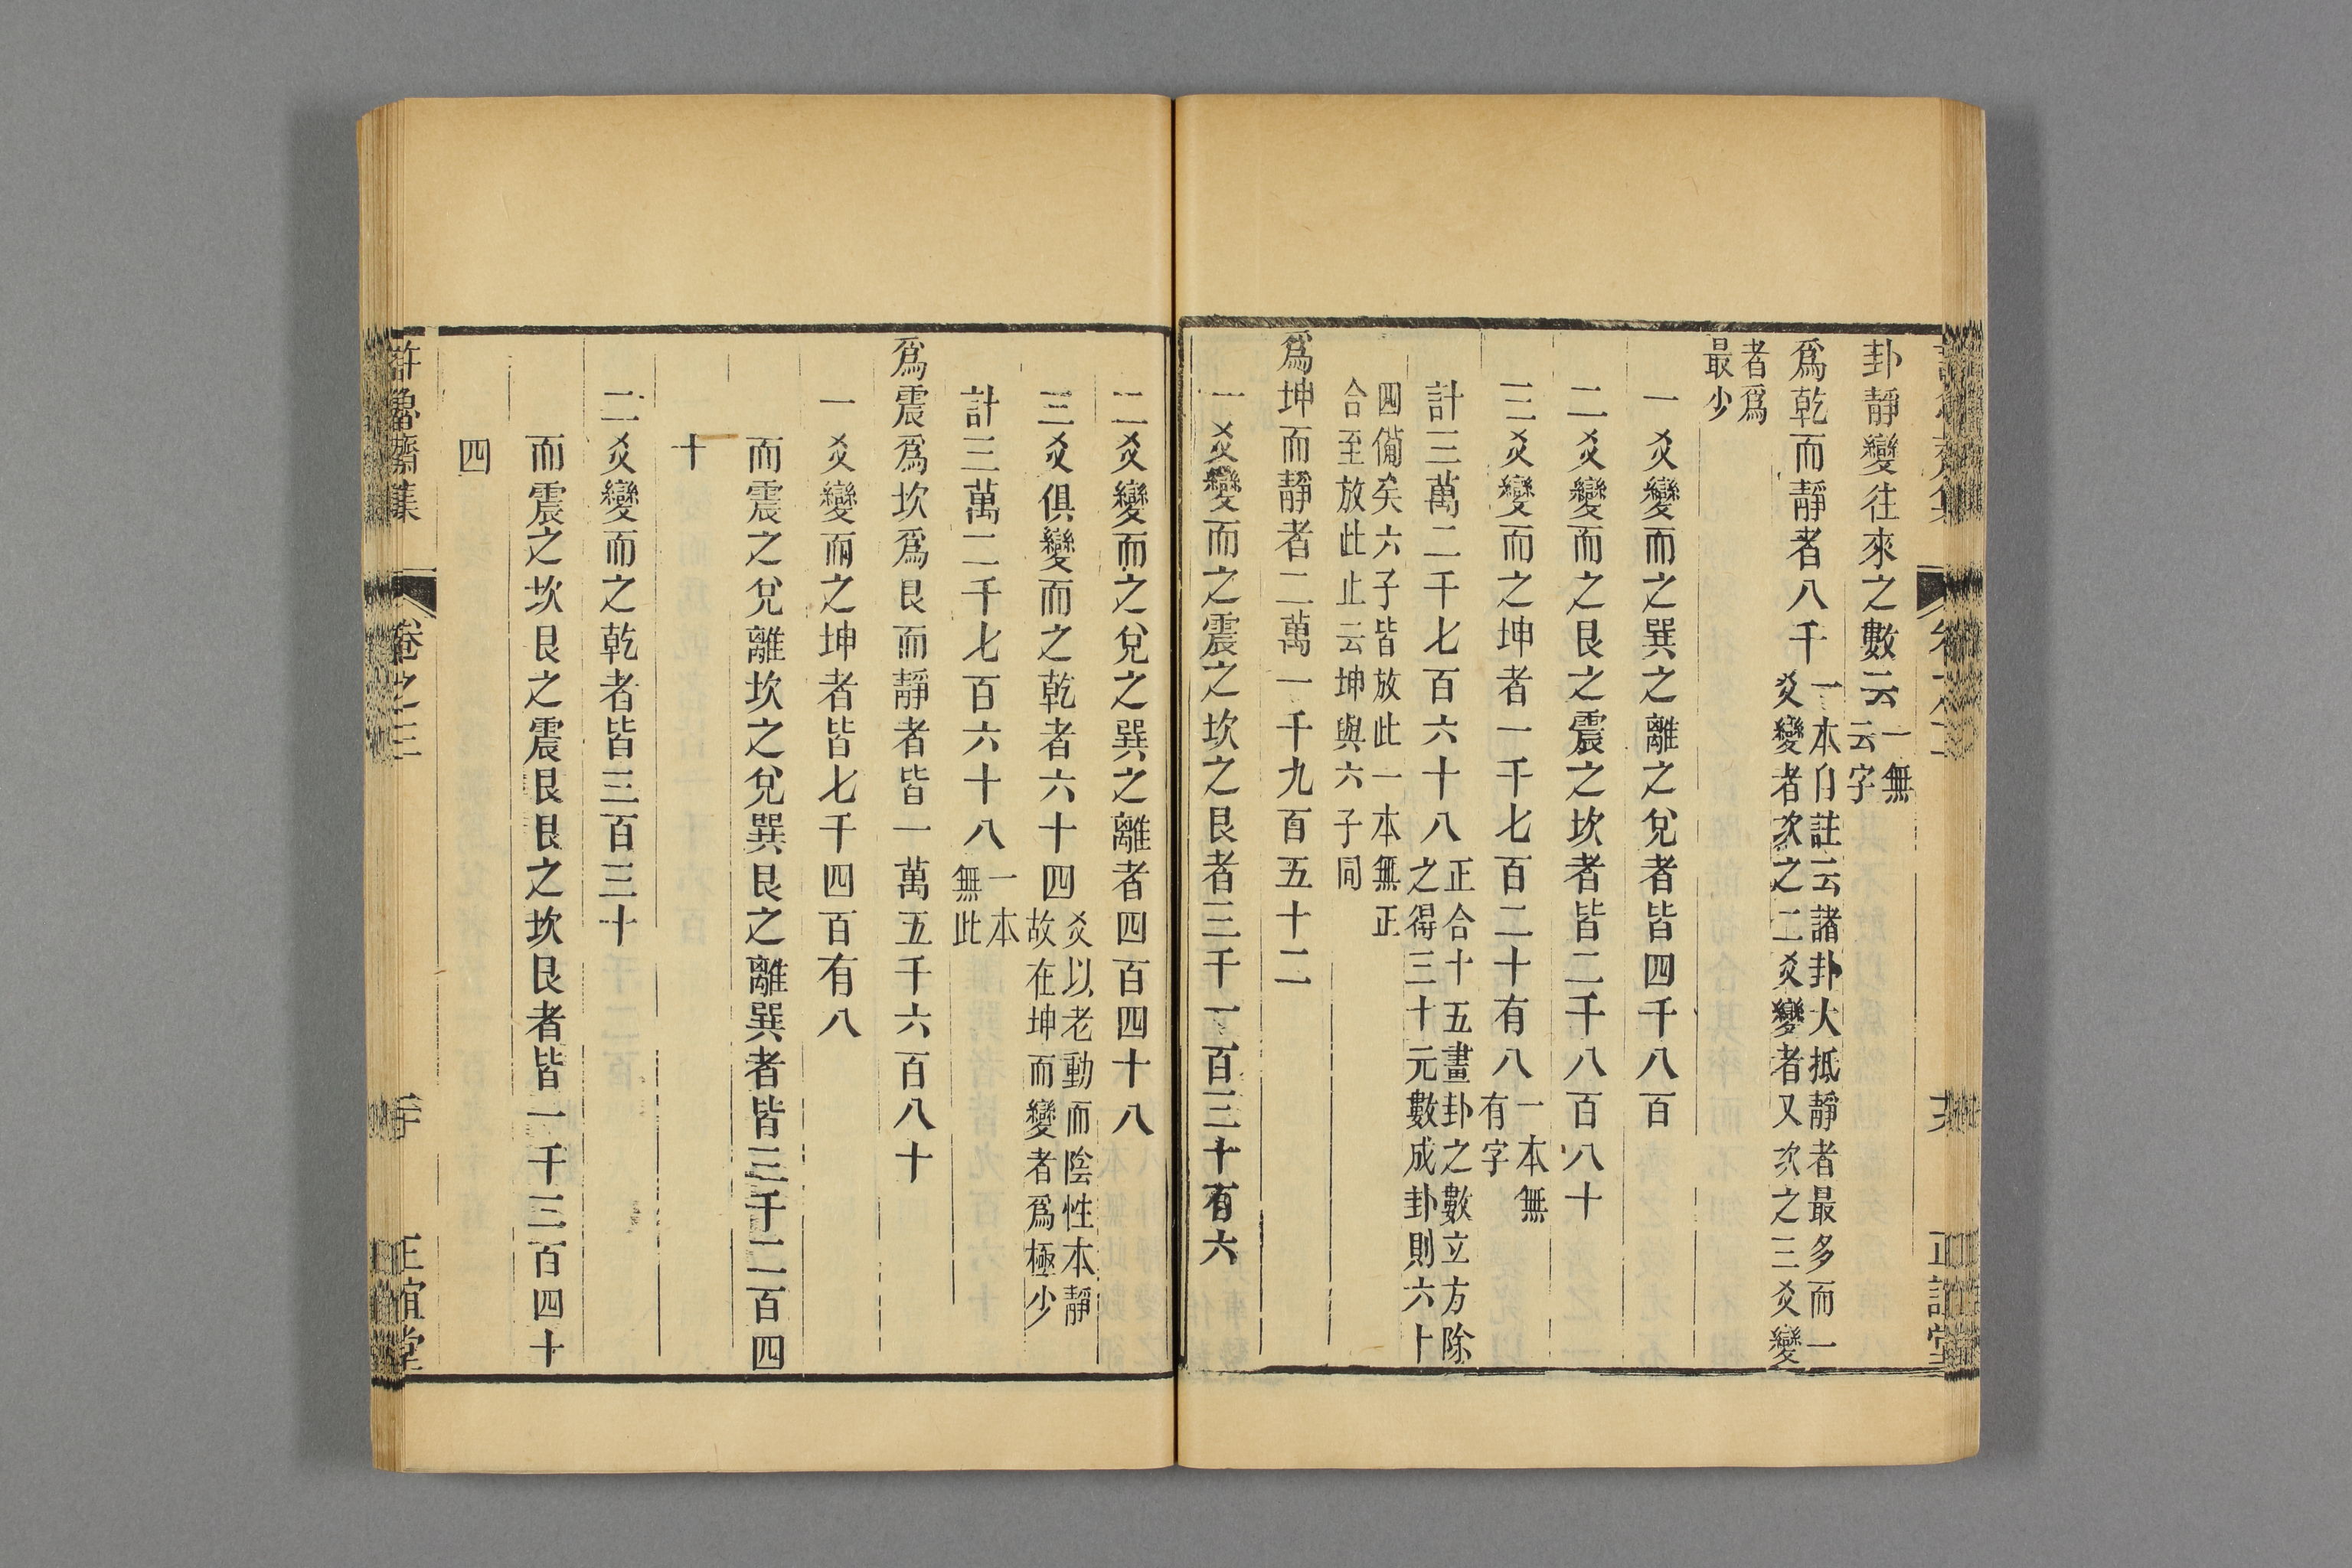 卦靜變往來之數云一無云字
爲乾而靜者八千一本自註云諸卦大抵靜者最多而一爻變者次之二爻變者又次之三爻變
者爲最少
一爻變而之巽之離之兌者皆四千八百
二爻變而之艮之震之坎者皆二千八百八十
三爻變而之坤者一千七百二十有八一本無有字
計三萬二千七百六十八正合十五畫卦之數立方除之得三十元數成卦則六十
四備矣六子皆放此一本無正合至放此止云坤與六子同
爲坤而靜者二萬一千九百五十二
一爻變而之震之坎之艮者三千一百三十有六
二爻變而之兌之巽之離者四百四十八
三爻俱變而之乾者六十四爻以老動而陰性本靜故在坤而變者爲極少
計三萬二千七百六十八一本無此
爲震爲坎爲艮而靜者皆一萬五千六百八十
一爻變而之坤者皆七千四百有八
而震之兌離坎之兌巽艮之離巽者皆三千二百四
十
二爻變而之乾者皆三百三十
而震之坎艮之震艮艮之坎艮者皆一千三百四十
四
許魯齋集 卷之三 二十 正誼堂